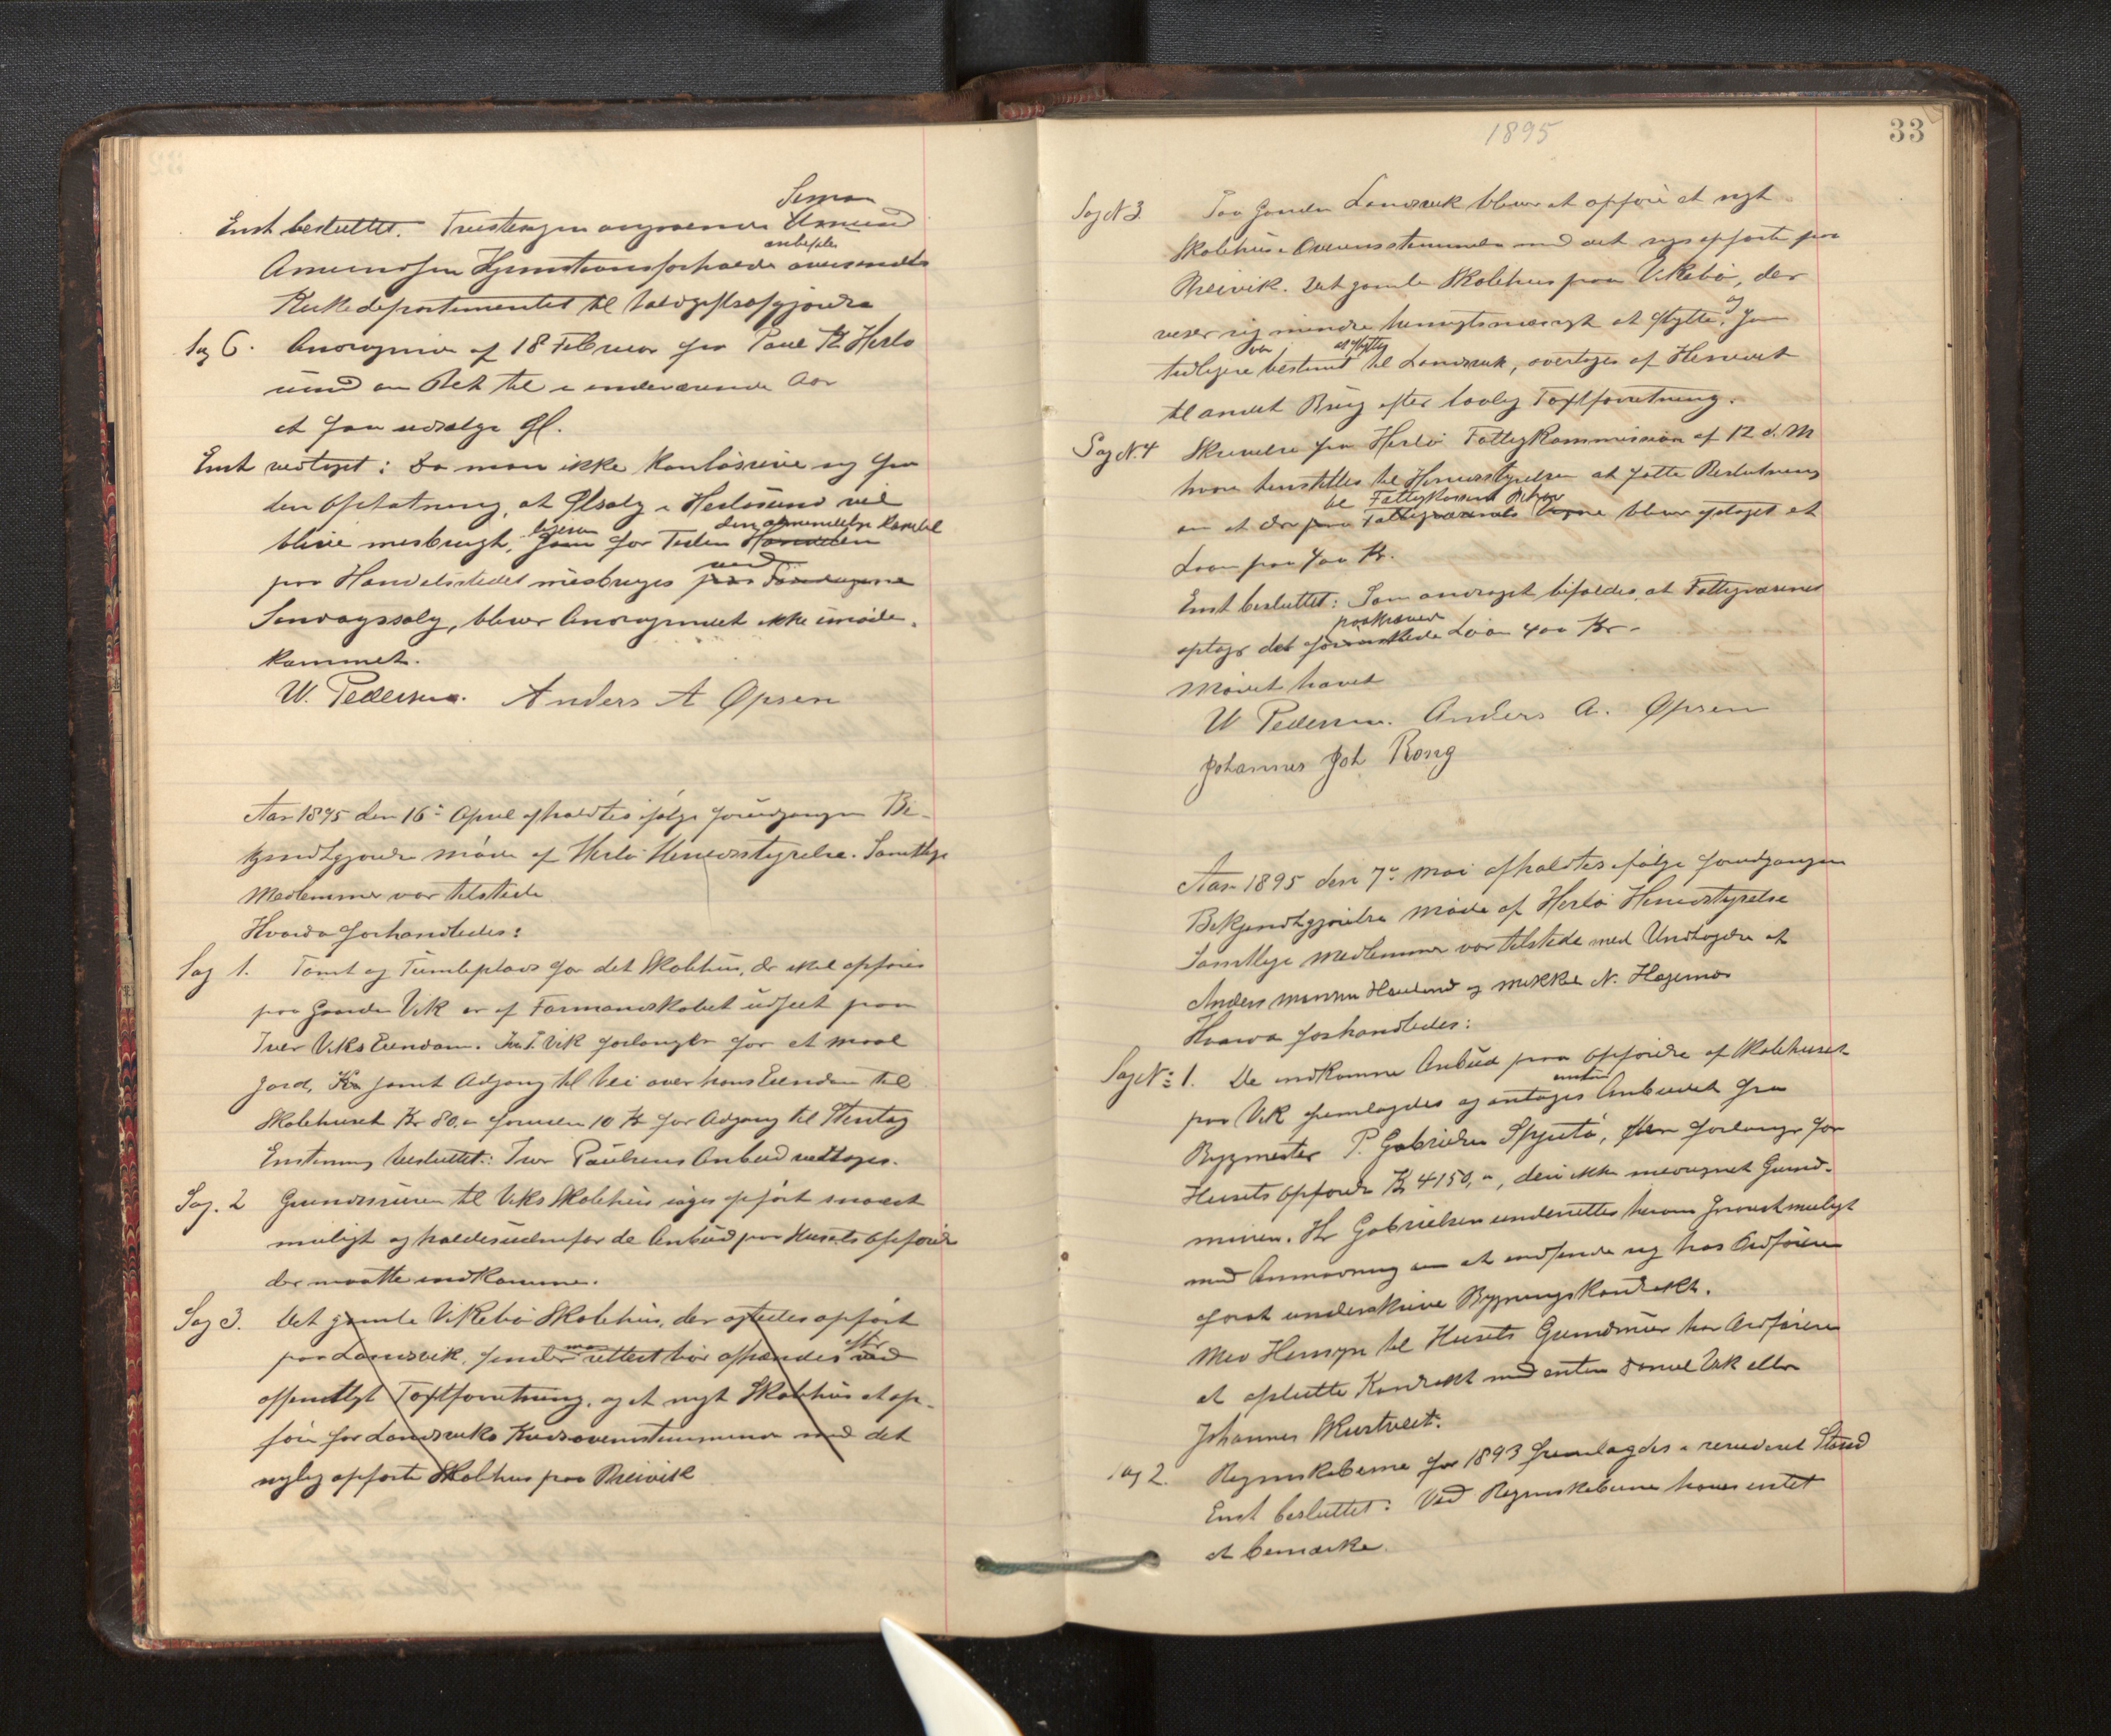 Simon
Enst besluttet. Tvistingen angaaende Amund
anbefales
Amundsen Hjemstavnsforholde oversendes
Kirkedepartementet til Valggiftsafgjørelse
Sag 6. Andragende af 18 Februar fra Paul K Herlø
sund om Ret til i indeværende Aar
at faa udsælge Øl.
Enst vedtaget: Da man ikke kan løsrive sig fra
den Opfatning, at Ølsalg i Herløsund vil
ligesom den almindelige Handel
blive misbrugt, som for Tiden Handelen
ved
paa Handelsstedet misbruges paa Søndagene
Søndagssalg, bliver Andragendet ikke imøde-
kommet.
W. Pedersen. Anders A Opsen
Aar 1895 den 16de April afholdtes ifølge forudgangen Be-
kjendtgjørelse møde af Herlø Herredsstyrelse. Samtlige
Medlemmer var tilstede
Hvorda forhandledes:
Sag 1. Tomt og Tumleplads for det Skolehus, der skal opføres
paa Gaarden Vik er af Formandskabet udseet paa
Iver Viks Eiendom. Iver P. Vik forlanger for et maal
Jord, Kr samt Adgang til Vei over hans Eiendom til
Skolehuset Kr 80,00 foruden 10 Kr for Adgang til Stentag
Enstemmig besluttet: Iver Paulsens Anbud vedtages.
Sag. 2 Grundmuren til Viks Skolehus søges opført snarest
muligt og holdes udenfor de Anbud paa Husets Opførelse
der maatte indkomme.
Sag 3. Det gamle Vikebø Skolehus, der agtedes opført
paa Landsvik, finder man rettest bør afhændes ved
efter
offentligt Taxtforretning, og et nyt Skolehus at op-
føre for Landsviks Kreds overensstemmende med det
nylig opførte Skolehus paa Breivik
1895
33
Sag N 3. Paa Gaarden Landsvik bliver at opføre et nyt
Skolehus i Overensstemmelse med det nys opførte paa
Breivik. Det gamle Skolehus paa Vikebø, der
viser sig mindre hensigtsmæssigt at flytte, og som
var at flytte
tidligere bestemt til Landsvik, overtages af Herredet
til andet Brug efter lovlig Taxtforretning.
Sag N. 4 Skrivelse fra Herlø Fattigkommission af 12 d. M
hvori henstilles til Herredsstyrelsen at fatte Beslutning
til Fattigkassens Behov
om at der paa Fattigvæsenets Vegne bliver optaget et
Laan paa 400 Kr.
Enst besluttet: Som andraget bifaldes, at Fattigvæsenet
paakrævede
optager det forønskede Laan 400 Kr.
Mødet hævet
W Pedersen. Anders A. Opsen
Johannes Joh Rong
Aar 1895 den 7de Mai afholdtes ifølge forudgangen
Bekjendtgjørelse Møde af Herlø Herredsstyrelse
Samtlige Medlemmer var tilstede med Undtagelse af
Anders Monsen Hauland og Mikkel N. Hagenæs
Hvorda forhandledes:
Sag No: 1. De indkomne Anbud paa Opførelse af Skolehuset
enst
paa Vik fremlagdes og antages Anbudet fra
Bygmester P. Gabrielsen Spjutø, der forlanger for
Husets Opførelse Kr 4150,00, deri ikke medregnet Grund-
muren. Hr Gabrielsen underrettes herom snarest muligt
med Anmodning om at indfinde sig hos Ordføreren
forat underskrive Bygningskontrakt.
Med Hensyn til Husets Grundmur har Ordføreren
at afslutte Kontrakt med enten Daniel Vik eller
Johannes Skurtveit.
Sag 2. Regnskaberne for 1893 fremlagdes i revideret Stand
Enst besluttet: Ved Regnskaberne haves intet
at bemærke.